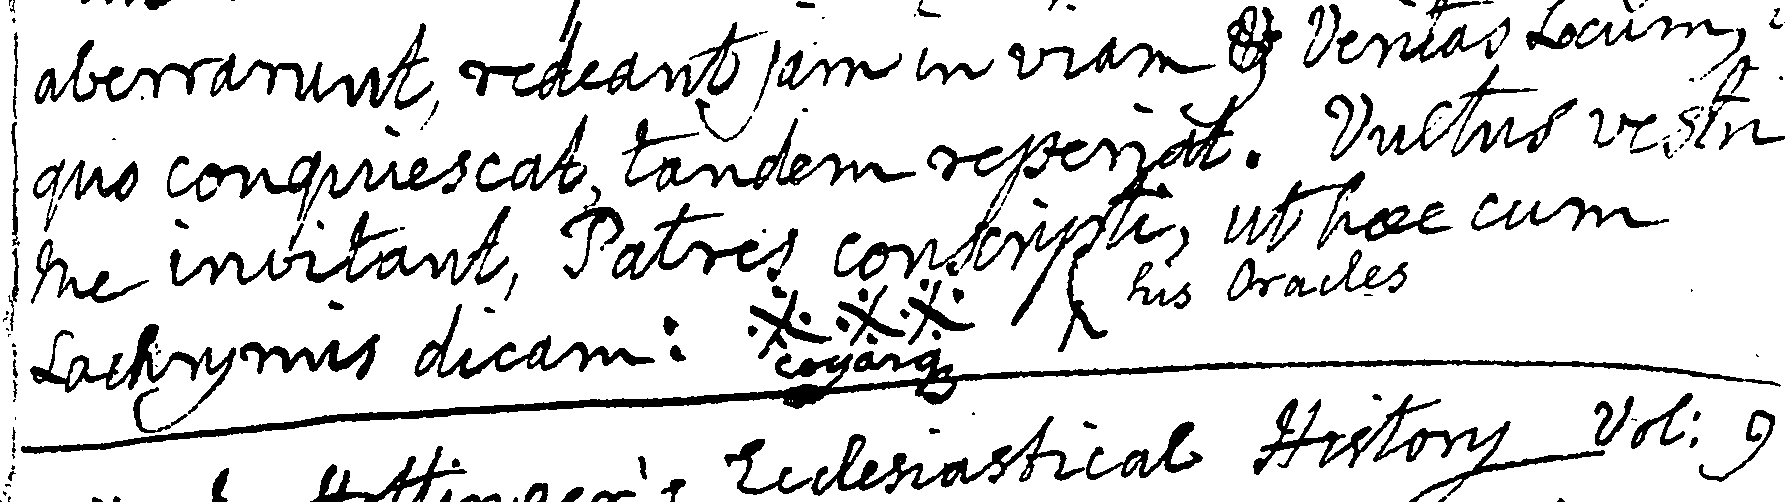 aberrarunt, redeant jam in viam & Veritas Locum,
quo conquiescat, tandem reperiat. Vultus vestri
me invitant, Patres conscripti, ut haec cum
his Oracles
Lachrymis dicam:
Hottinger's Ecclesiastical History Vol: 9